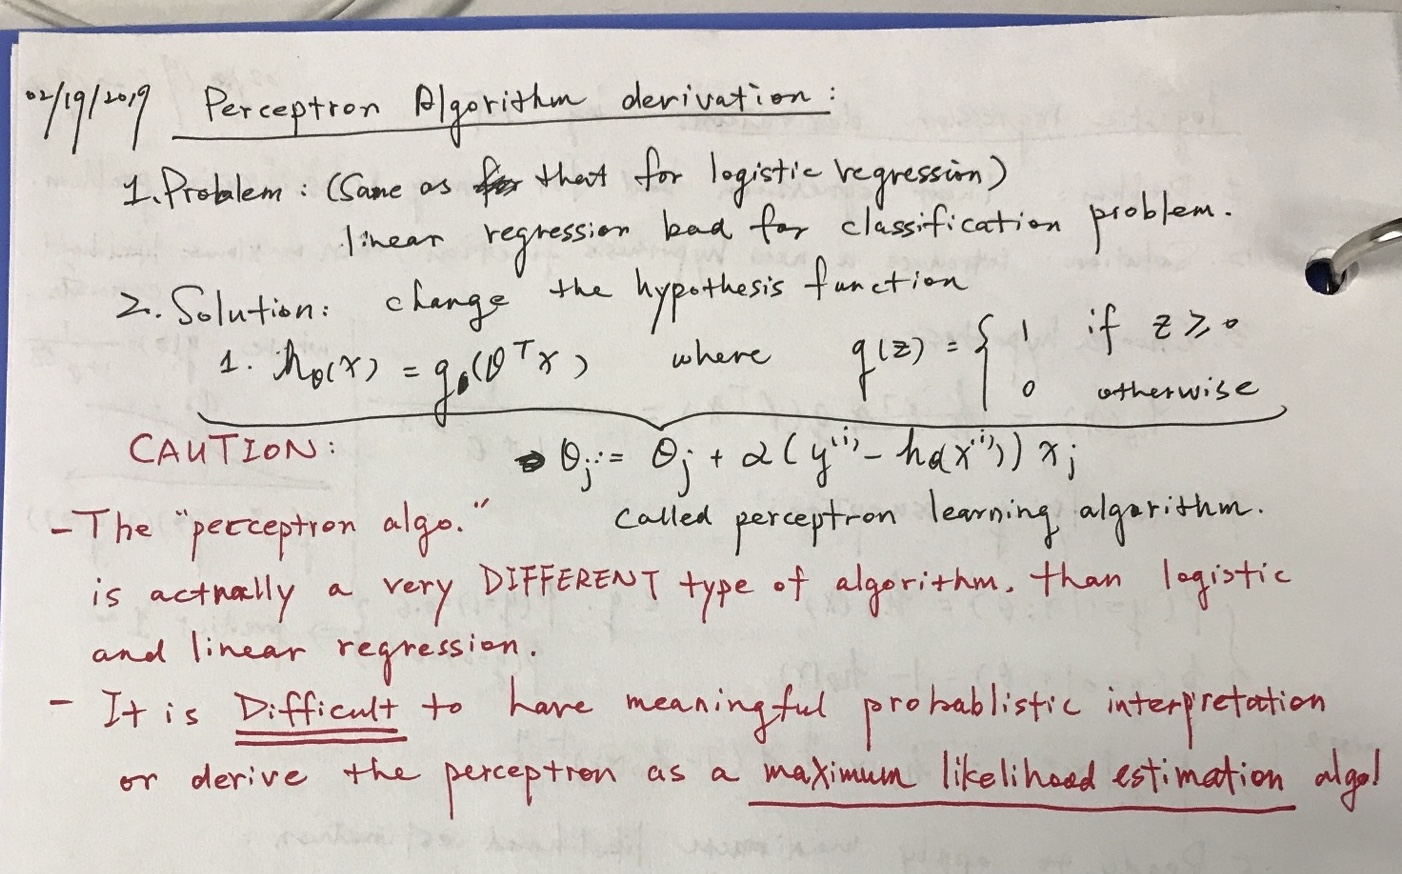 02/19/2019 Perceptron Algorithm derivation:
1. Problem: (Same as that for logistic regression)
linear regression bad for classification problem.
2. Solution: change the hypothesis function
1. hθ(x) = g(θᵀx) where g(z) = { 1 if z ≥ 0
0 otherwise
CAUTION: → θj := θj + α(y⁽ⁱ⁾ − hθ(x⁽ⁱ⁾)) xj
- The "perceptron algo." called perceptron learning algorithm.
is actually a very DIFFERENT type of algorithm. than logistic
and linear regression.
- It is Difficult to have meaningful probablistic interpretation
or derive the perceptron as a maximum likelihood estimation algo!